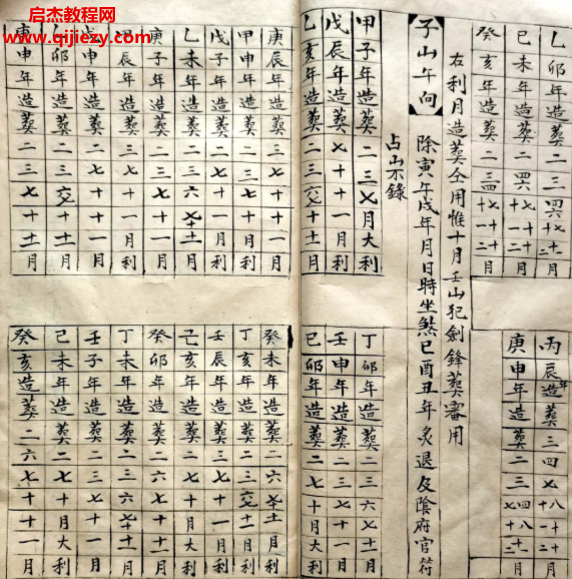 启杰教程网
www.qijiejc.com
乙卯年造葬二三四六七十
己未年造葬二
癸亥年造葬二三四
丙辰年造葬三四七八
庚申年造葬二三四
右利月造葬仝用惟十月壬山犯劍鋒葬審用
【子山午向】 除寅午戌年月日時坐煞巳酉丑年炙退及陰府官符
占山不錄
甲子年造葬二三七月大利
戊辰年造葬七十十一月利
乙亥年造葬二三六七十十一月
丁卯年造葬二三六七十十一月
壬申年造葬二三七十一月
己卯年造葬二七十月大利
庚辰年造葬三七十十一月
甲申年造葬二三七十月利
戊子年造葬二七十十一月利
乙未年造葬二三六七十十一月
庚子年造葬二三七十十一月
甲辰年造葬三七十十一月利
戊申年造葬二七十十一月
乙卯年造葬二三六七十十一月
庚申年造葬二三七十十一月
癸未年造葬二六七十十一月大利
丁亥年造葬二三六七十十一月
壬辰年造葬三七十一月利
己亥年造葬二七十月大利
癸卯年造葬二六七十十一月
丁未年造葬二三六七十十一月
壬子年造葬二三七十一月利
己未年造葬二七十月大利
癸亥造葬二六七十十一月利